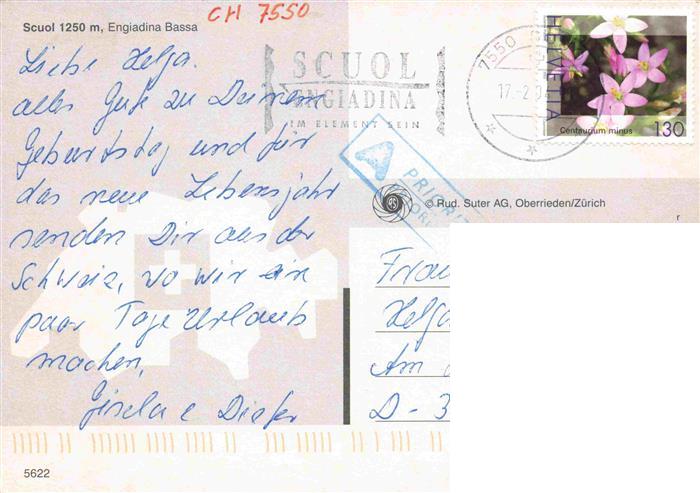 CH 7550
Scuol 1250 m, Engiadina Bassa
Liebe Helga.
alles Gute zu Deinem
Geburtstag und für
das neue Lebensjahr
senden Dir aus der
Schweiz, wo wir ein
paar Tage Urlaub
machen,
Gisela & Dieter
5622
SCUOL
ENGIADINA
IM ELEMENT SEIN
7550
17.-2.0
HELVETIA
Centaurium minus
130
A
PRIORIT
© Rud. Suter AG, Oberrieden/Zürich
r
Frau
Helga
Am
D-3